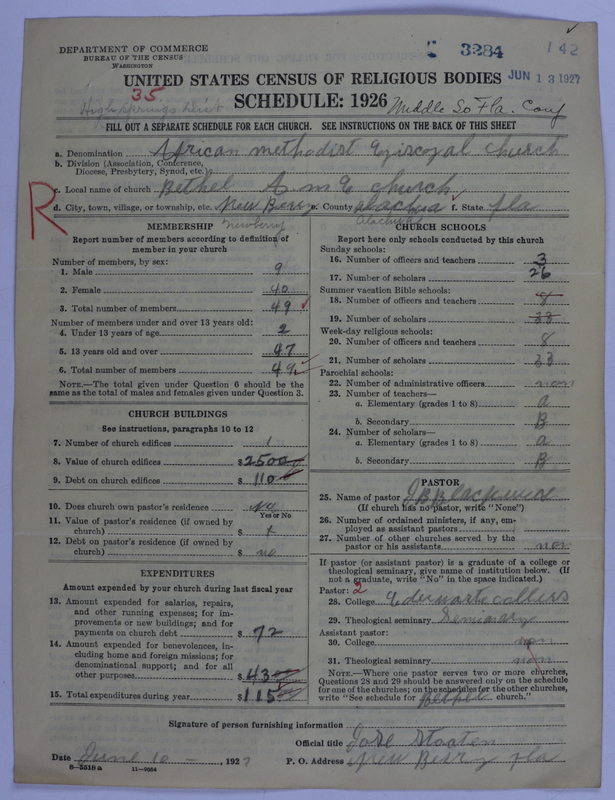 DEPARTMENT OF COMMERCE
BUREAU OF THE CENSUS
WASHINGTON
3284
142
UNITED STATES CENSUS OF RELIGIOUS BODIES
JUN 13 1927
35
High Springs Dist
SCHEDULE: 1926
Middle So Fla. Conf
FILL OUT A SEPARATE SCHEDULE FOR EACH CHURCH. SEE INSTRUCTIONS ON THE BACK OF THIS SHEET
a. Denomination African methodist Episcopal church
b. Division (Association, Conference, Diocese, Presbytery, Synod, etc.)
R
c. Local name of church Bethel A. m E church
d. City, town, village, or township, etc. New Berry e. County alachua f. State fla
Newberry Alachua
MEMBERSHIP
Report number of members according to definition of member in your church
Number of members, by sex:
1. Male 9
2. Female 40
3. Total number of members 49
Number of members under and over 13 years old:
4. Under 13 years of age 2
5. 13 years old and over 47
6. Total number of members 49
NOTE.—The total given under Question 6 should be the same as the total of males and females given under Question 3.
CHURCH BUILDINGS
See instructions, paragraphs 10 to 12
7. Number of church edifices 1
8. Value of church edifices $ 2500
9. Debt on church edifices $ 110
10. Does church own pastor's residence? No
Yes or No
11. Value of pastor's residence (if owned by church) $ x
12. Debt on pastor's residence (if owned by church) $ no
EXPENDITURES
Amount expended by your church during last fiscal year
13. Amount expended for salaries, repairs, and other running expenses; for improvements or new buildings; and for payments on church debt $ 72
14. Amount expended for benevolences, including home and foreign missions; for denominational support; and for all other purposes $ 43
15. Total expenditures during year $ 115
CHURCH SCHOOLS
Report here only schools conducted by this church
Sunday schools:
16. Number of officers and teachers 3
17. Number of scholars 26
Summer vacation Bible schools:
18. Number of officers and teachers 8
19. Number of scholars 33
Week-day religious schools:
20. Number of officers and teachers 8
21. Number of scholars 33
Parochial schools:
22. Number of administrative officers non
23. Number of teachers—
a. Elementary (grades 1 to 8) a
b. Secondary B
24. Number of scholars—
a. Elementary (grades 1 to 8) a
b. Secondary B
PASTOR
25. Name of pastor J B
(If church has no pastor, write "None")
26. Number of ordained ministers, if any, employed as assistant pastors
27. Number of other churches served by the pastor or his assistants non
If pastor (or assistant pastor) is a graduate of a college or theological seminary, give name of institution below. (If not a graduate, write "No" in the space indicated.)
Pastor: 2
28. College
29. Theological seminary Semiarary
Assistant pastor:
30. College non
31. Theological seminary non
NOTE.—Where one pastor serves two or more churches, Questions 28 and 29 should be answered only on the schedule for one of the churches; on the schedules for the other churches, write "See schedule for Bethel church."
Signature of person furnishing information
Official title Staaten
Date June 10, 1927
P. O. Address New Berry fla
8-5518 a 11-9064